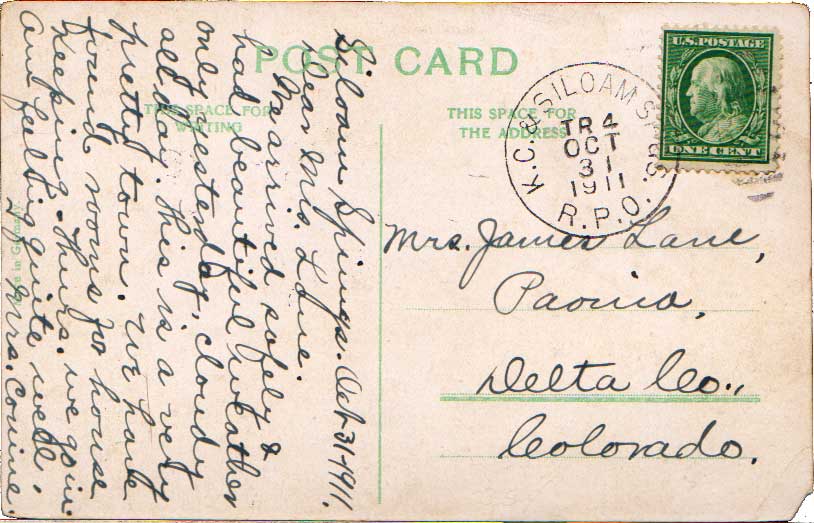 POST CARD
THIS SPACE FOR
WRITING
THIS SPACE FOR
THE ADDRESS
U.S. POSTAGE
ONE CENT
K.C. & SILOAM SPGS.
TR 4
OCT
31
1911
R.P.O.
Mrs. James Lane,
Paonia,
Delta Co.,
Colorado.
Siloam Springs. Oct-31-1911.
Dear Mrs. Lane.
We arrived safely &
had beautiful weather
only yesterday, cloudy
all day. This is a very
pretty town. We have
found rooms for house
keeping. Thurs. we go in.
Am feeling quite well.
Mrs. Corine.
Made in Germany.